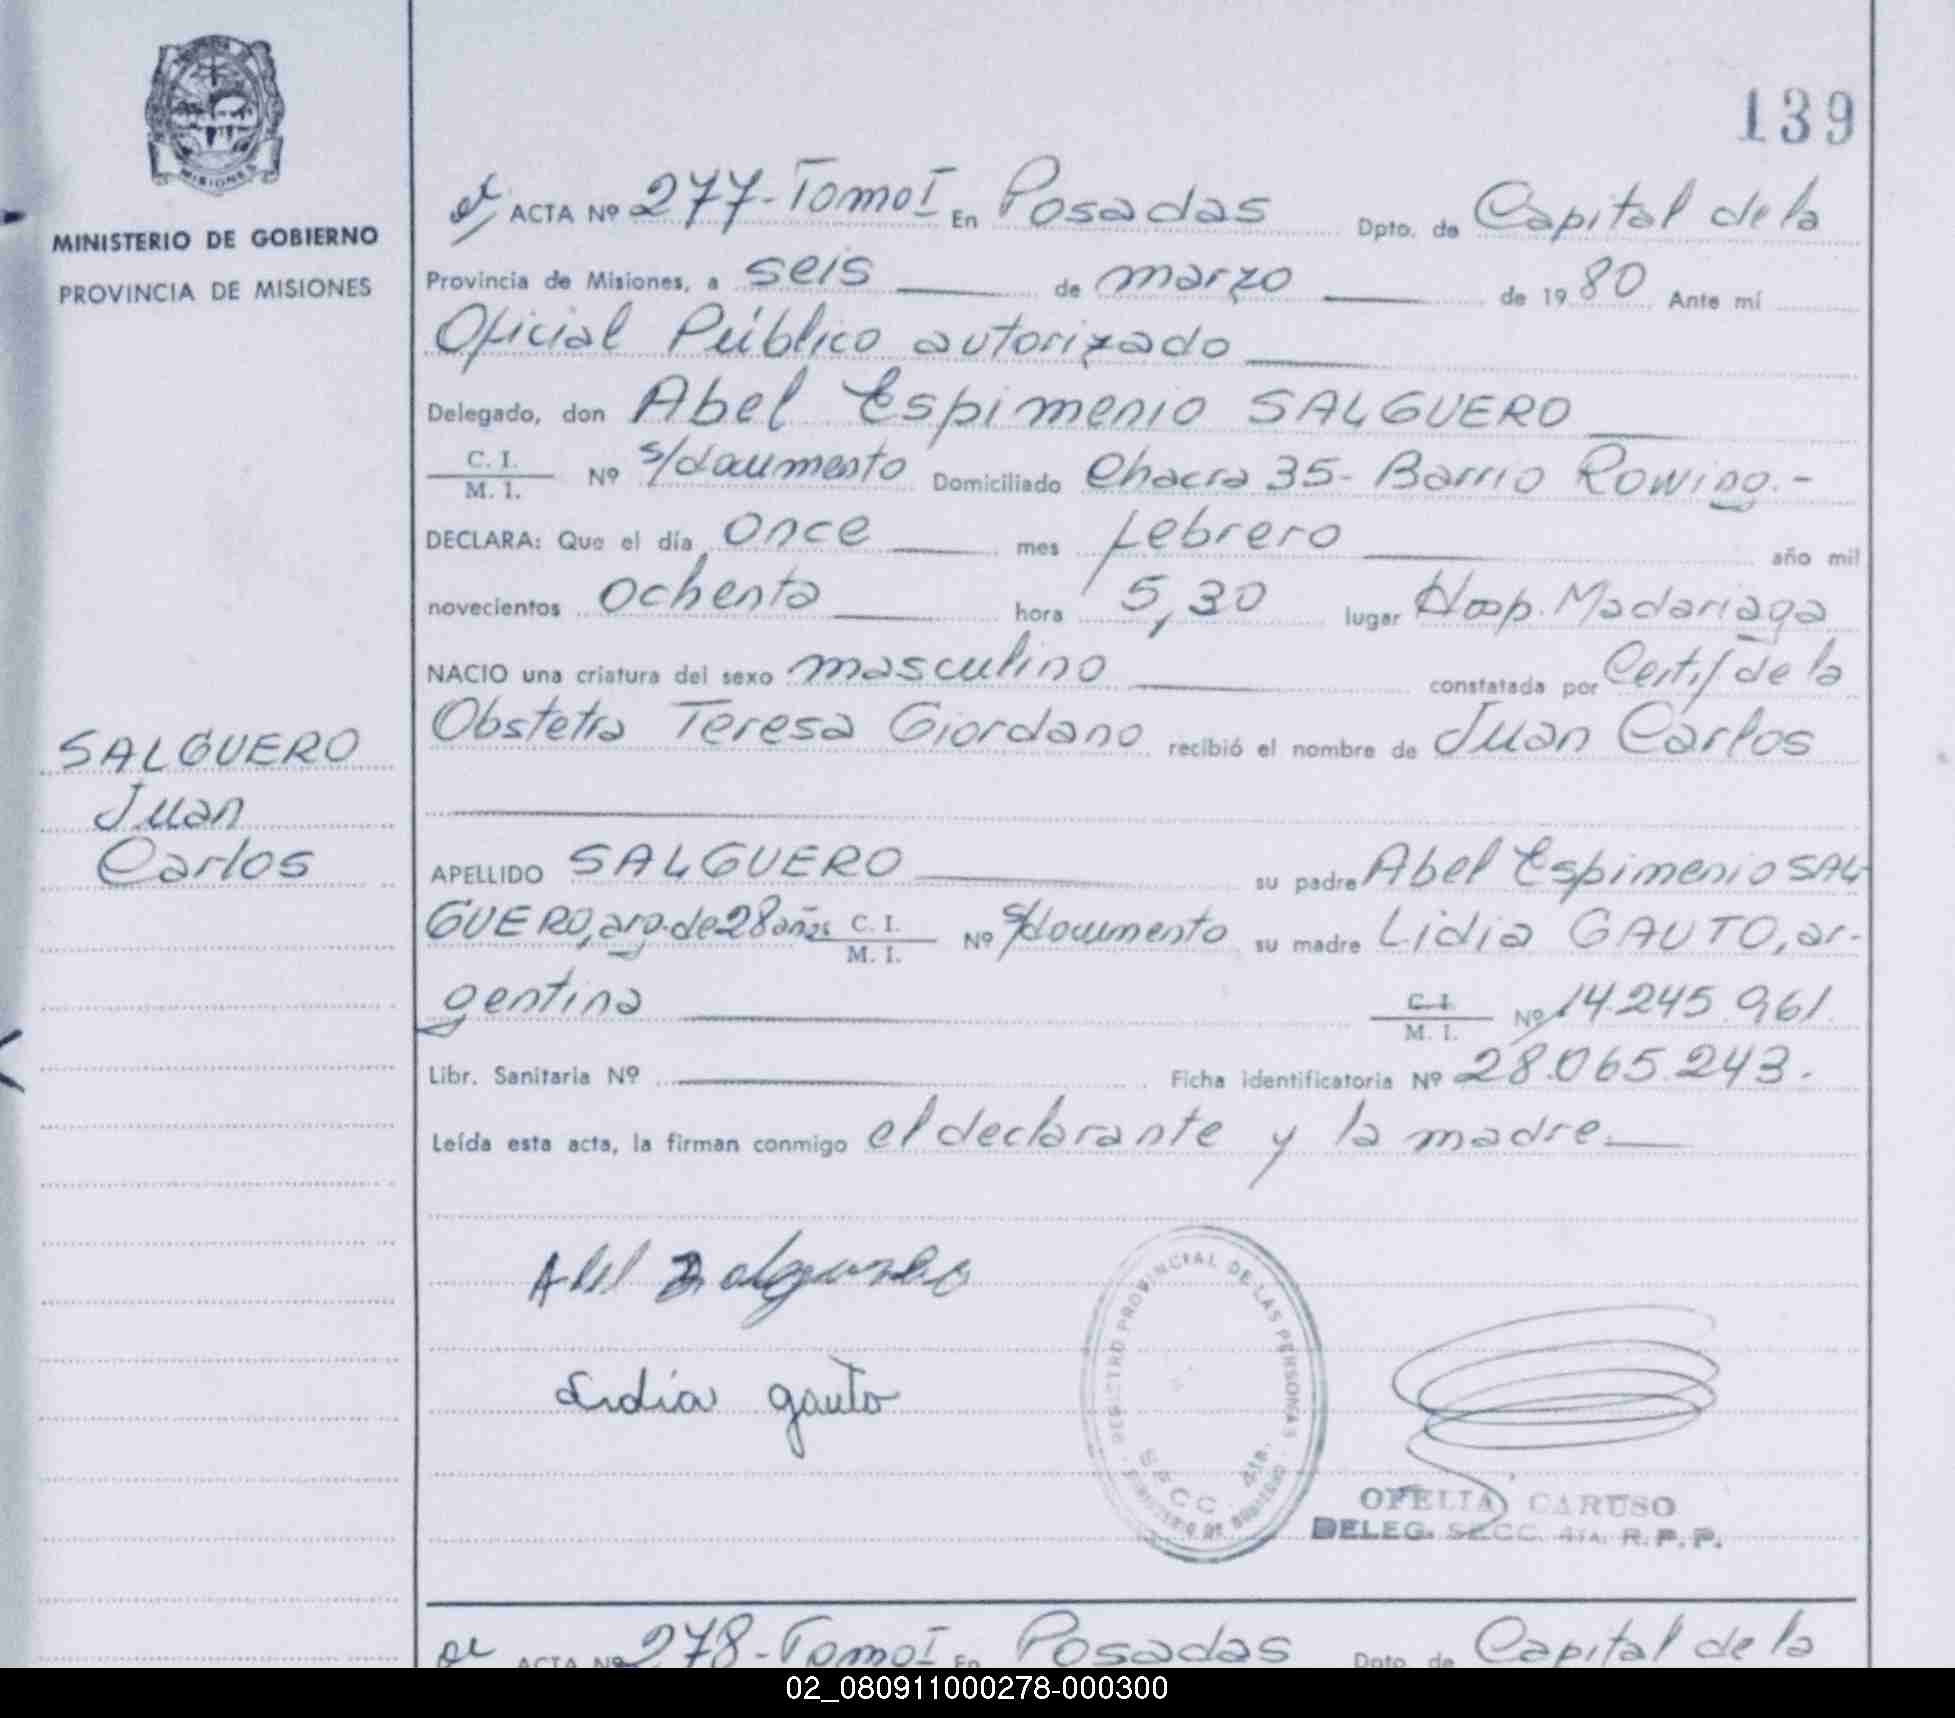 MISIONES
MINISTERIO DE GOBIERNO
PROVINCIA DE MISIONES
139
ACTA Nº 277-Tomo I En Posadas Dpto. de Capital de la
Provincia de Misiones, a seis de marzo de 1980 Ante mí
Oficial Público autorizado
Delegado, don Abel Espimenio SALGUERO
C. I. / M. I. Nº s/documento Domiciliado Chacra 35- Barrio Rowing.-
DECLARA: Que el día once mes febrero año mil
novecientos ochenta hora 5,30 lugar Hosp. Madariaga
NACIO una criatura del sexo masculino constatada por Certif de la
Obstetra Teresa Giordano recibió el nombre de Juan Carlos
SALGUERO
Juan
Carlos
APELLIDO SALGUERO su padre Abel Espimenio SAL-
GUERO, arg. de 28 años C. I. / M. I. Nº s/documento su madre Lidia GAUTO, ar-
gentina C. I. / M. I. Nº 14.245.961
Libr. Sanitaria Nº Ficha identificatoria Nº 28.065.243.
Leída esta acta, la firman conmigo el declarante y la madre.
Abel Salguero
Lidia gauto
REGISTRO PROVINCIAL DE LAS PERSONAS
SECC. 4ta.
MINISTERIO DE GOBIERNO
OFELIA CARUSO
DELEG. SECC. 4TA. R. P. P.
ACTA Nº 278-Tomo I En Posadas Dpto. de Capital de la
02_080911000278-000300